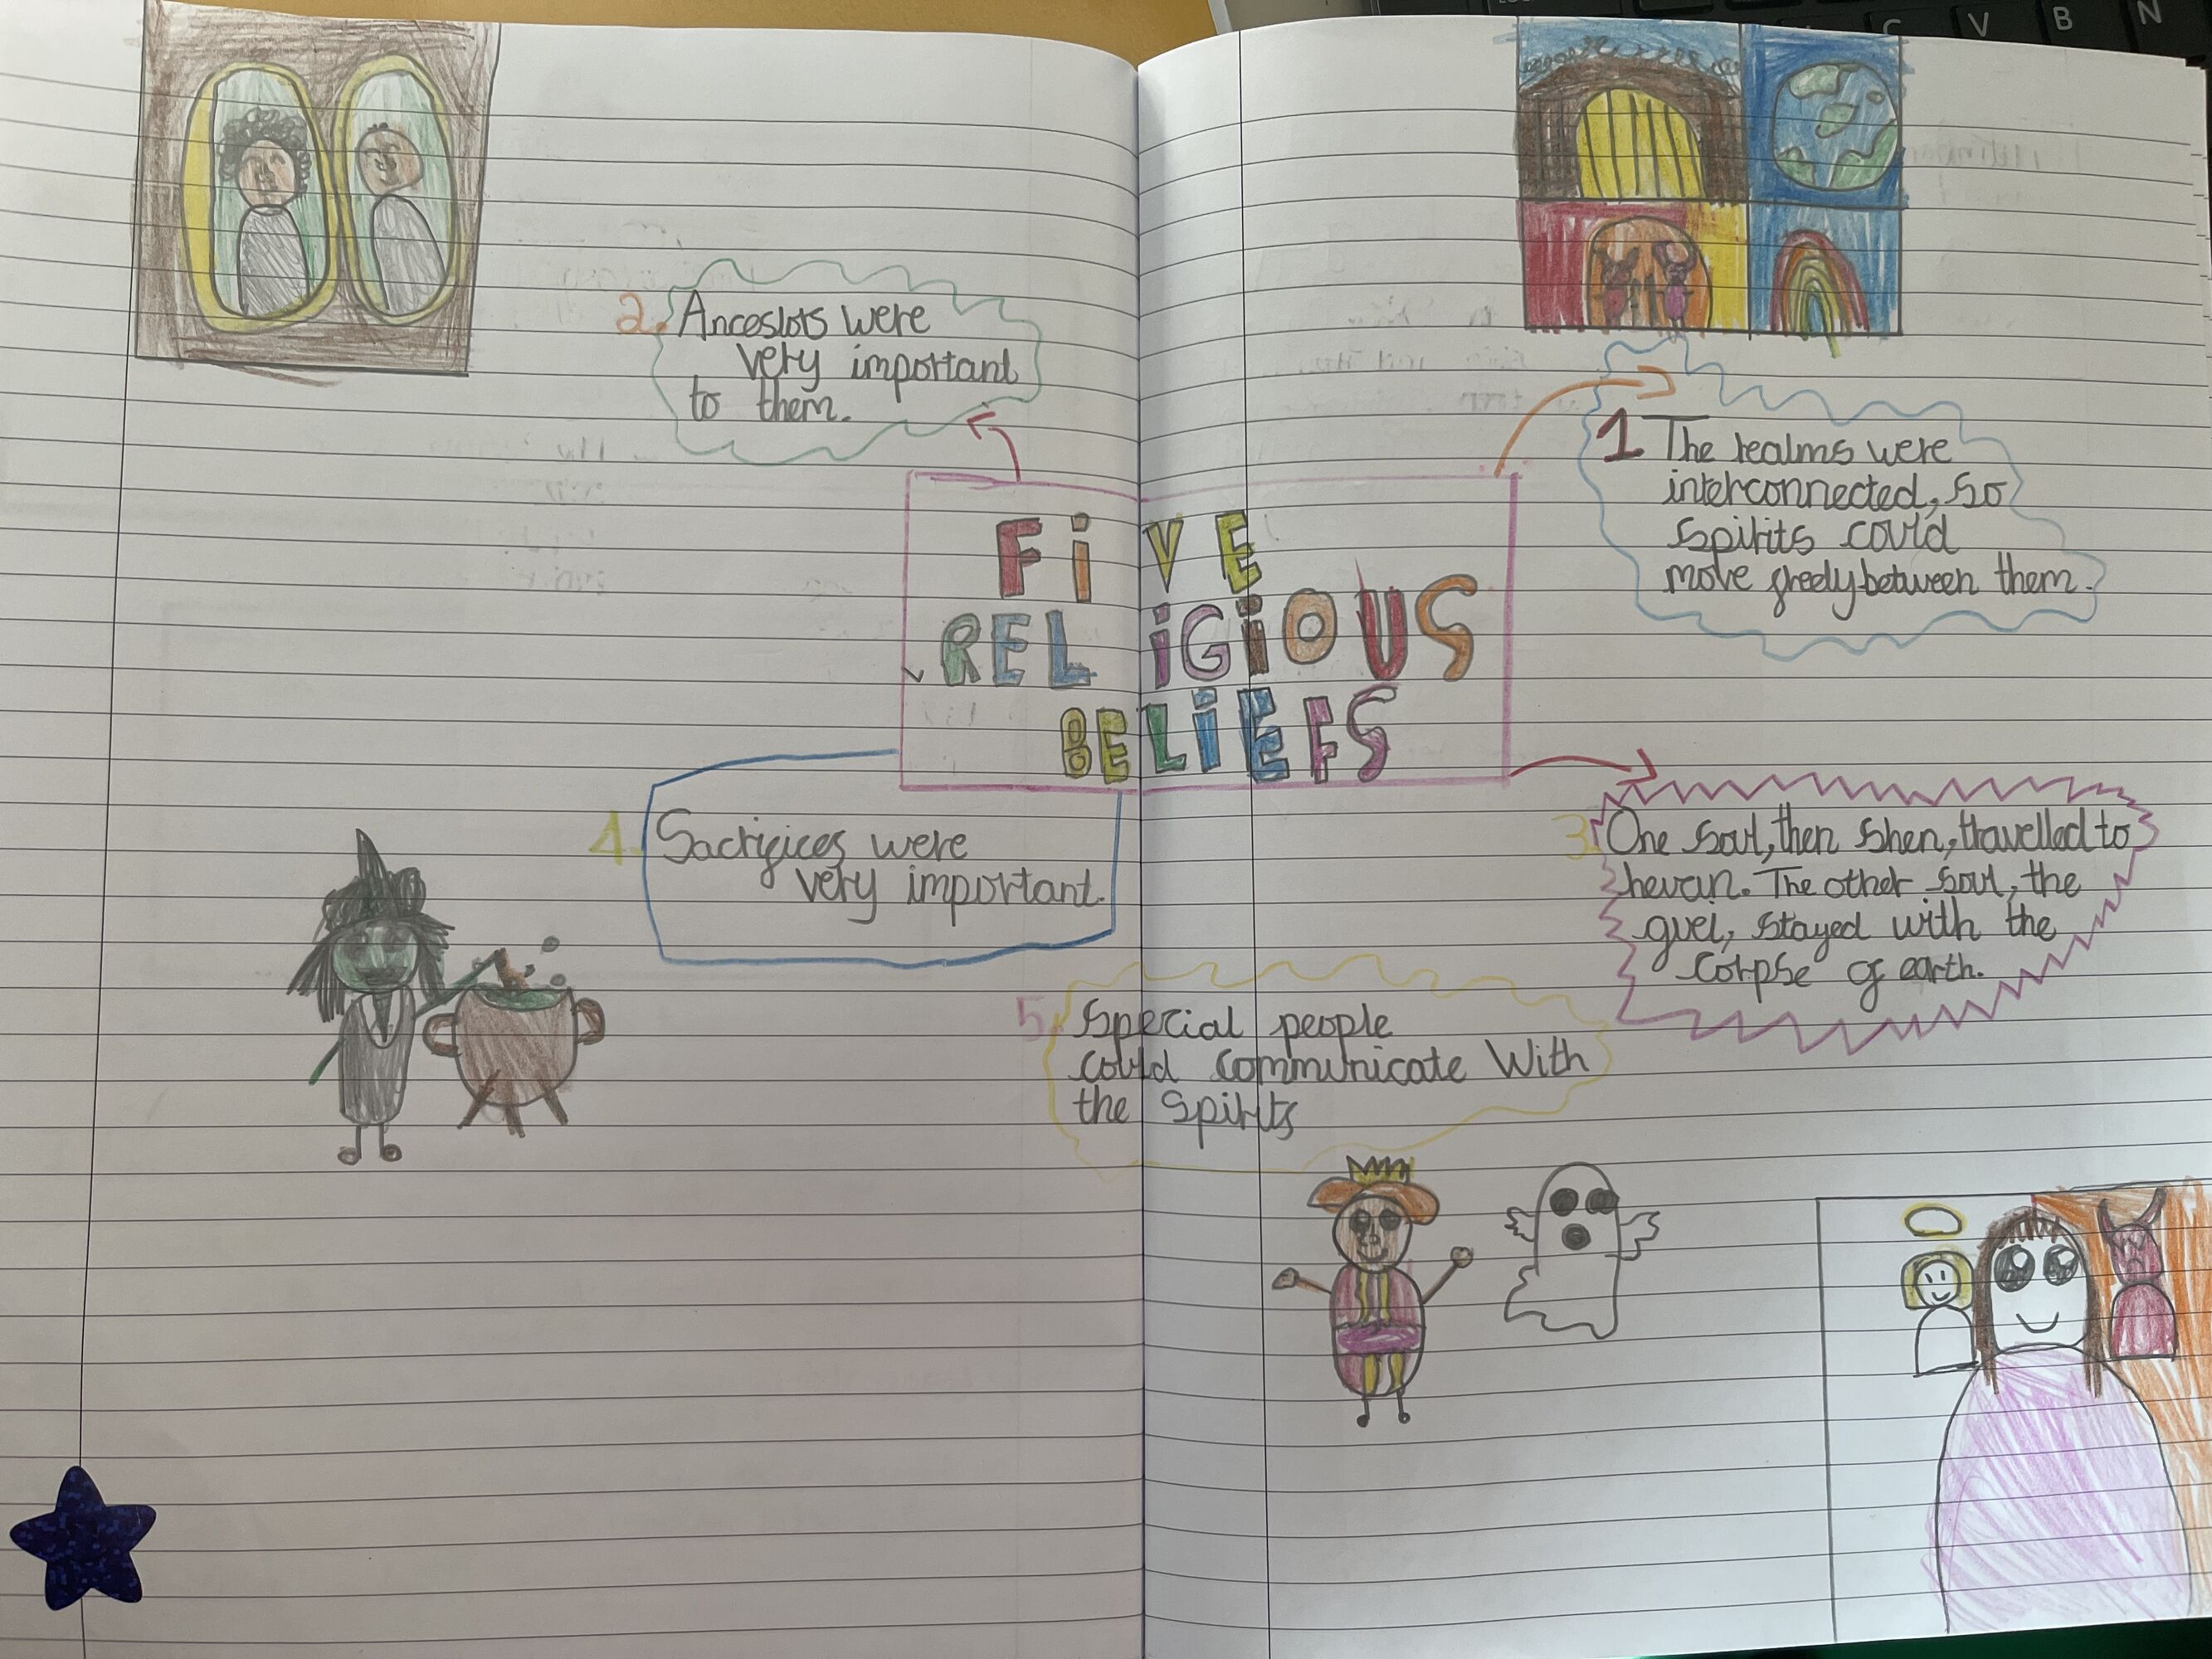 FiVE
RELiGiOUS
BELiEFS
1 The realms were
interconnected, so
spirits could
move freely between them.
2. Ancestors were
very important
to them.
3. One soul, then shen, travelled to
hevan. The other soul, the
guei, stayed with the
corpse of earth.
4. Sacrifices were
very important.
5. Special people
could communicate With
the spirits
C V B N